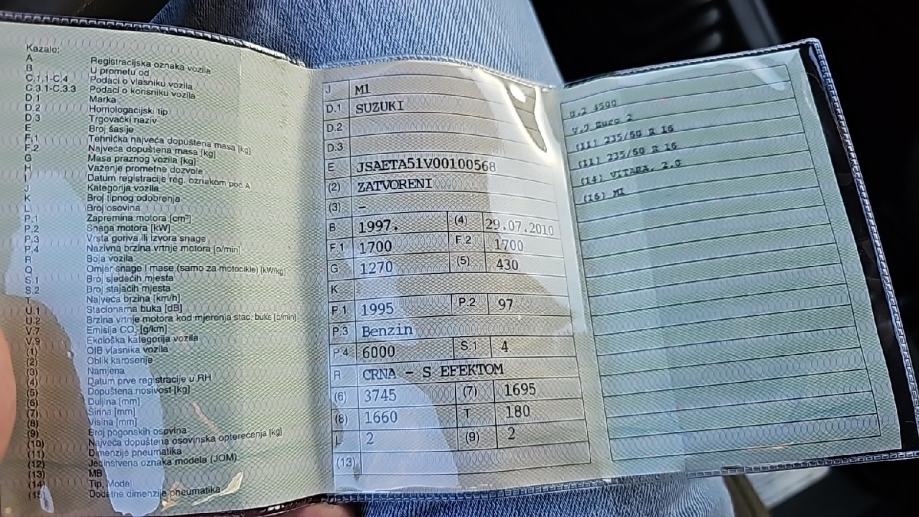 Kazalo:
A Registracijska oznaka vozila
B U prometu od
C.1.1-C.4 Podaci o vlasniku vozila
C.3.1-C.3.3 Podaci o korisniku vozila
D.1 Marka
D.2 Homologacijski tip
D.3 Trgovački naziv
E Broj šasije
F.1 Tehnička najveća dopuštena masa [kg]
F.2 Najveća dopuštena masa [kg]
G Masa praznog vozila [kg]
H Važenje prometne dozvole
I Datum registracije reg. oznakom pod A
J Kategorija vozila
K Broj tipnog odobrenja
L Broj osovina
P.1 Zapremina motora [cm³]
P.2 Snaga motora [kW]
P.3 Vrsta goriva ili izvora snage
P.4 Nazivna brzina vrtnje motora [o/min]
R Boja vozila
Q Omjer snage i mase (samo za motocikle) [kW/kg]
S.1 Broj sjedećih mjesta
S.2 Broj stajaćih mjesta
T Najveća brzina [km/h]
U.1 Stacionarna buka [dB]
U.2 Brzina vrtnje motora kod mjerenja stac. buke [o/min]
V.7 Emisija CO₂ [g/km]
V.9 Ekološka kategorija vozila
(1) OIB vlasnika vozila
(2) Oblik karoserije
(3) Namjena
(4) Datum prve registracije u RH
(5) Dopuštena nosivost [kg]
(6) Duljina [mm]
(7) Širina [mm]
(8) Visina [mm]
(9) Broj pogonskih osovina
(10) Najveća dopuštena osovinska opterećenja [kg]
(11) Dimenzije pneumatika
(12) Jedinstvena oznaka modela (JOM)
(13) MB
(14) Tip, Model
(15) Dodatne dimenzije pneumatika
J M1
D.1 SUZUKI
D.2
D.3
E JSAETA51V00100568
(2) ZATVORENI
(3) –
B 1997. (4) 29.07.2010
F.1 1700 F.2 1700
G 1270 (5) 430
K
P.1 1995 P.2 97
P.3 Benzin
P.4 6000 S.1 4
R CRNA - S EFEKTOM
(6) 3745 (7) 1695
(8) 1660 T 180
L 2 (9) 2
(13)
U.2 4500
V.9 Euro 2
(11) 235/60 R 16
(11) 235/60 R 16
(14) VITARA, 2.0
(16) M1